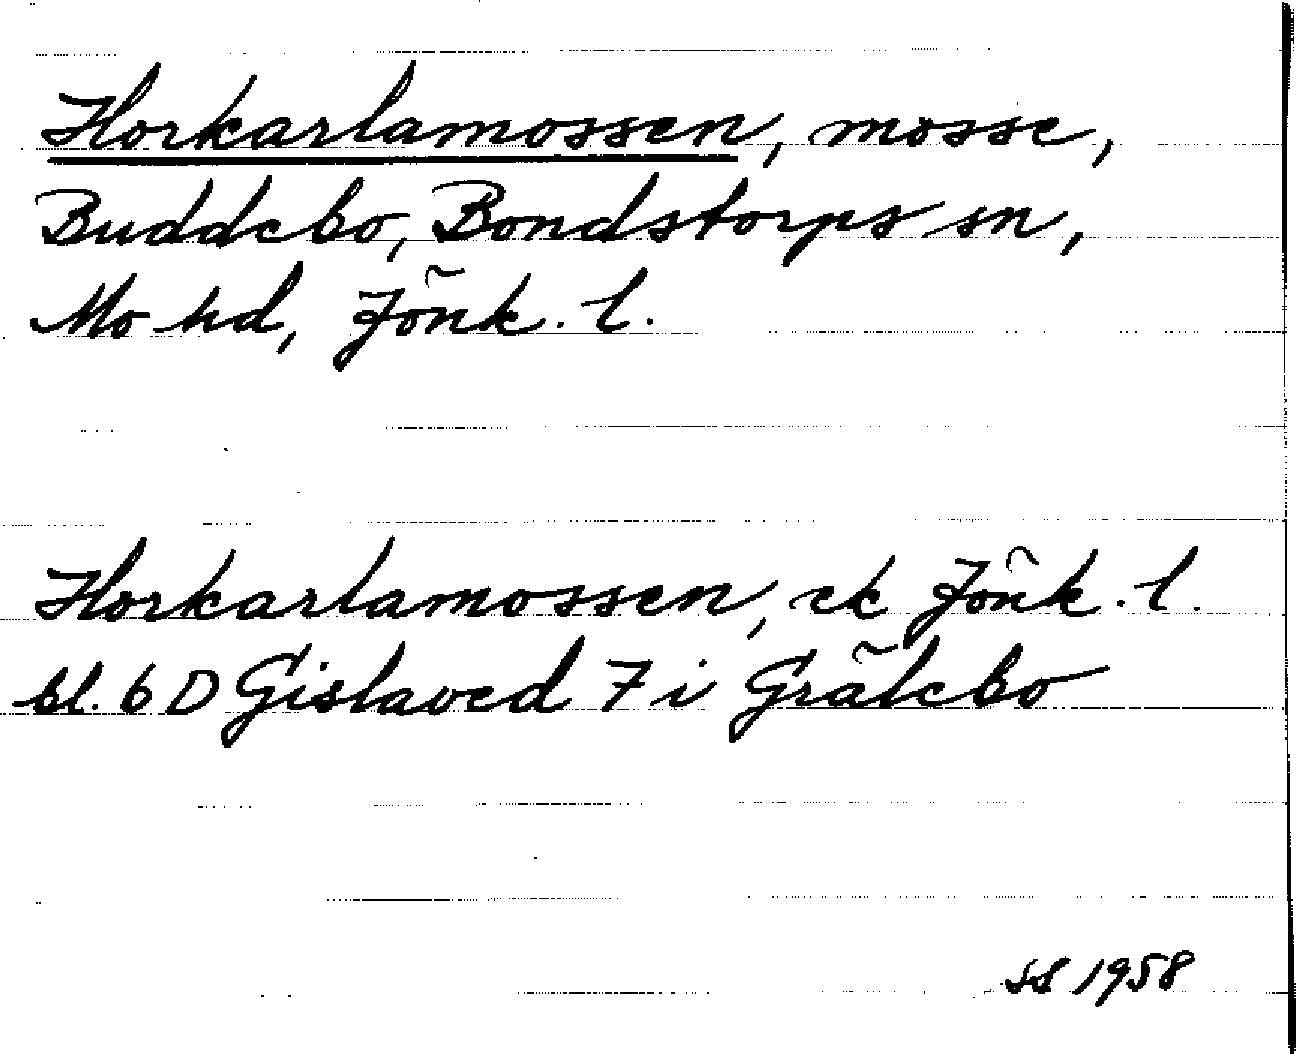 Horkarlamossen, mosse,
Buddebo, Bondstorps sn,
Mo hd, Jönk. l.
Horkarlamossen, ek Jönk. l.
bl. 6 D Gislaved 7 i Grälebo
SS 1958